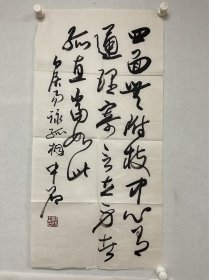 四面无附枝中心有
通理寄言立身者
孤直当如此
白居易咏孤桐 中石